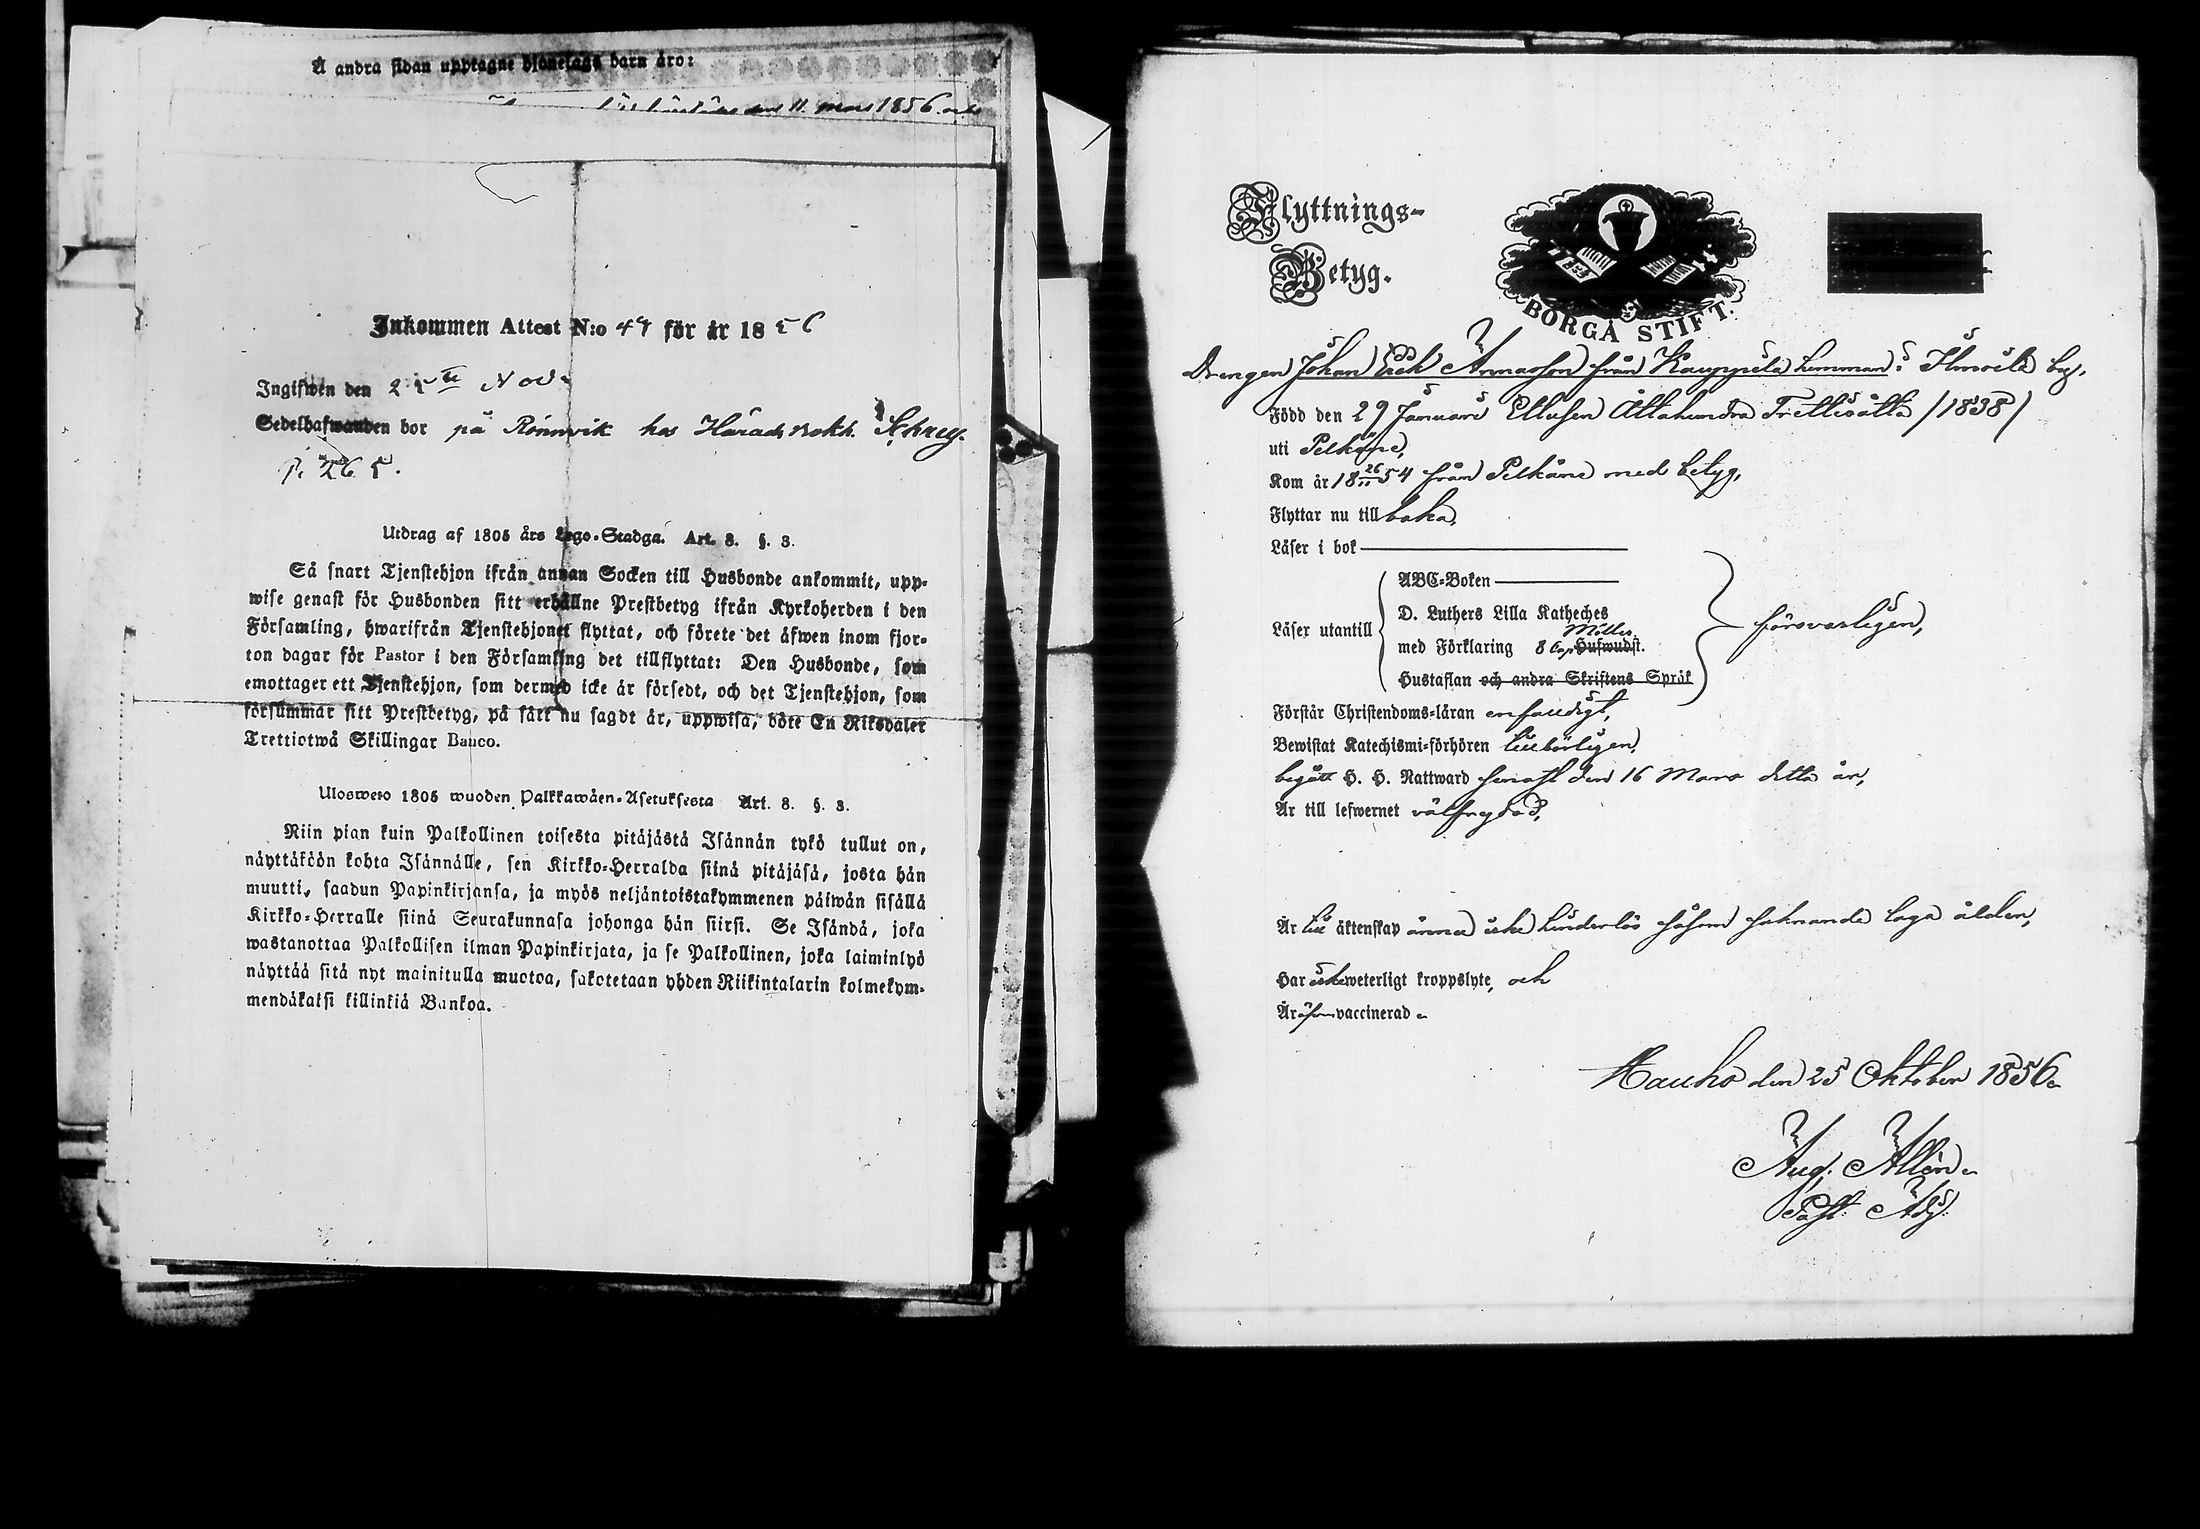 Å andra sidan upptagne hjonelags barn äro:
den 11. mars 1856
Inkommen Attest N:o för år 1856
Ingifwen den Nov.
Sedelhafwanden bor på Rönnvik hos Härads bokh. Schrey.
p. 265.
Utdrag af 1805 års Lego-Stadga. Art. 8. §. 3.
Så snart Tjenstehjon ifrån annan Socken till Husbonde ankommit, upp-
wise genast för Husbonden sitt erhållne Prestbetyg ifrån Kyrkoherden i den
Församling, hwarifrån Tjenstehjonet flyttat, och förete det äfwen inom fjor-
ton dagar för Pastor i den Församling det tillflyttat: Den Husbonde, som
emottager ett Tjenstehjon, som dermed icke är försedt, och det Tjenstehjon, som
försummar sitt Prestbetyg, på sätt nu sagdt är, uppwisa, böte En Riksdaler
Trettiotwå Skillingar Banco.
Ulosweto 1805 wuoden Palkkawäen-Asetuksesta Art. 8. §. 3.
Niin pian kuin Palkollinen toisesta pitäjästä Isännän tykö tullut on,
näyttäköön kohta Isännälle, sen Kirkko-Herralda siinä pitäjäsä, josta hän
muutti, saadun Papinkirjansa, ja myös neljäntoistakymmenen päiwän sisällä
Kirkko-Herralle siinä Seurakunnasa johonga hän siirsi. Se Isändä, joka
wastanottaa Palkollisen ilman Papinkirjata, ja se Palkollinen, joka laiminlyö
näyttää sitä nyt mainitulla muotoa, sakotetaan yhden Riikintalarin kolmekym-
mendäkaksi killinkiä Bankoa.
Flyttnings-
Betyg.
BORGÅ STIFT.
Drengen Johan Erik Annasson från Kauppila hemman i Ilmoila by,
Född den 29 Januari Ettusen Åttahundra Trettioåtta /1838/
uti Pelkäne,
Kom år 18 26/11 54 från Pelkäne med betyg,
Flyttar nu tillbaka,
Läser i bok
ABC-Boken
D. Luthers Lilla Katheches
Läser utantill
med Förklaring 8 cap Möllers Hufwudst.
försvarligen,
Hustaflan och andra Skriftens Språk
Förstår Christendoms-läran enfaldigt,
Bewistat Katechismi-förhören tillbörligen,
begått H. H. Nattward senast den 16 Mars detta år,
Är till lefwernet välfrejdad,
Är till äktenskap ännu icke hinderlös såsom saknande laga ålder,
Har icke weterligt kroppslyte, och
Är äfven vaccinerad.
Hauho den 25 Oktober 1856.
Aug. Allén.
Past. Adj.